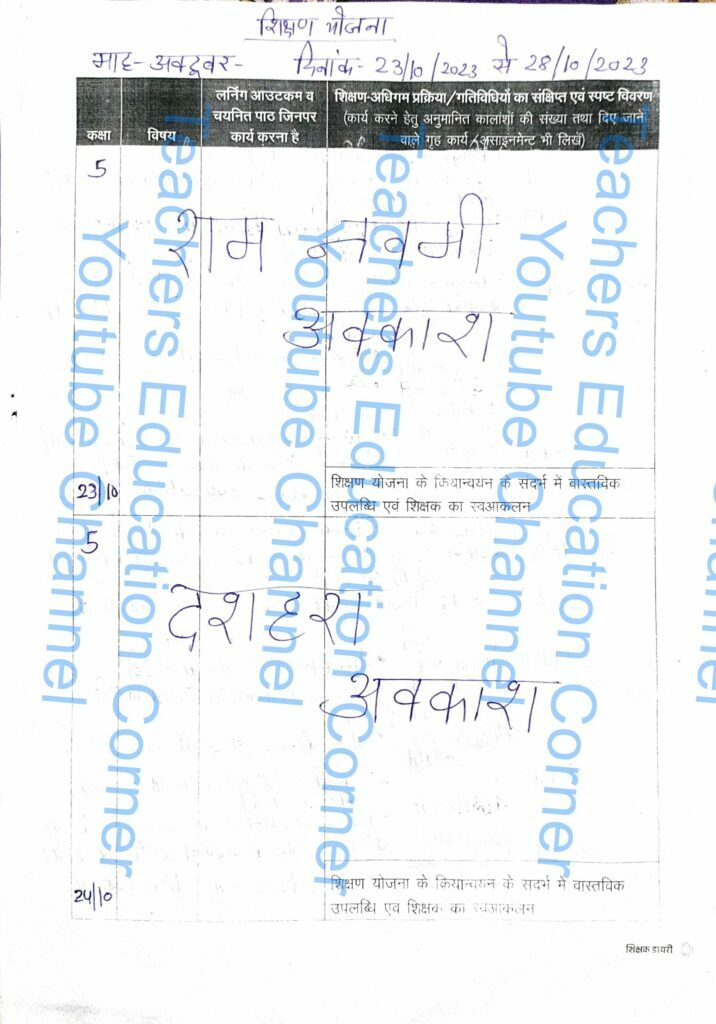 शिक्षण योजना
माह- अक्टूबर- दिनांक- 23/10/2023 से 28/10/2023
कक्षा
विषय
लर्निंग आउटकम व
चयनित पाठ जिनपर
कार्य करना है
शिक्षण-अधिगम प्रक्रिया/गतिविधियों का संक्षिप्त एवं स्पष्ट विवरण
(कार्य करने हेतु अनुमानित कालांशों की संख्या तथा दिए जाने
वाले गृह कार्य/असाइनमेन्ट भी लिखें)
5
राम नवमी
अवकाश
23/10
शिक्षण योजना के कियान्वयन के सदर्भ में वास्तविक
उपलब्धि एवं शिक्षक का स्वआकलन
5
दशहरा
अवकाश
24/10
शिक्षण योजना के कियान्वयन के सदर्भ में वास्तविक
उपलब्धि एवं शिक्षक का स्वआकलन
शिक्षक डायरी
Teachers Education Corner
Youtube Channel
Teachers Education Corner
Youtube Channel
Teachers Education Corner
Youtube Channel